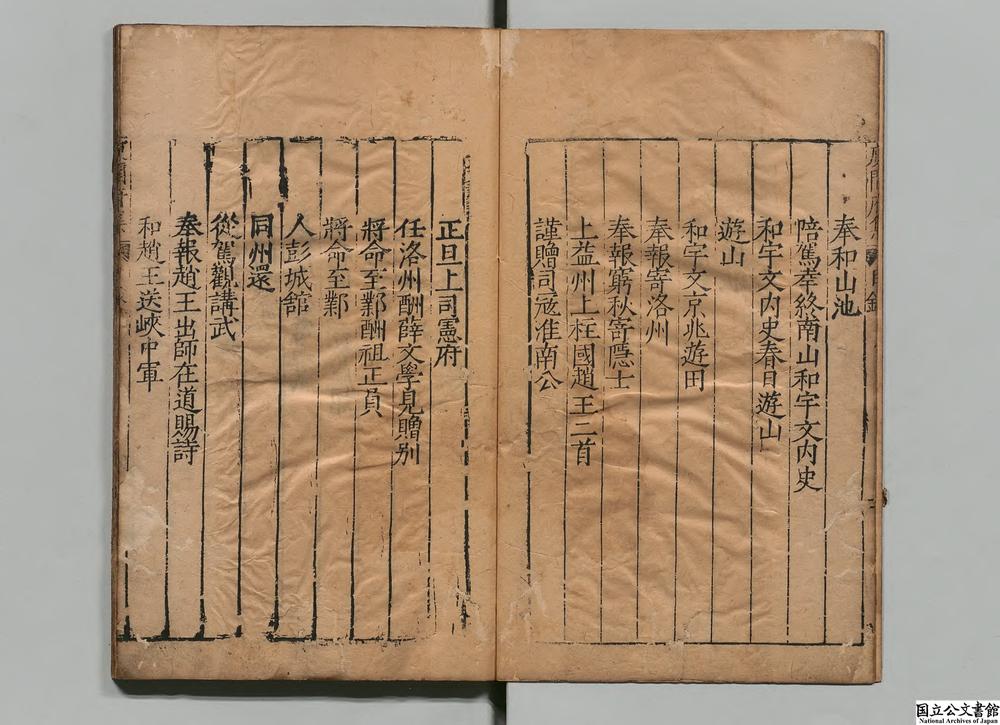 奉和山池
陪駕幸終南山和宇文内史
和宇文内史春日遊山
遊山
和宇文京兆遊田
奉報寄洛州
奉報窮秋寄隱士
上益州上柱國趙王二首
謹贈司冦淮南公
正旦上司憲府
任洛州酬薛文學見贈别
將命至鄴酬祖正員
將命至鄴
入彭城舘
同州還
從駕觀講武
奉報趙王出師在道賜詩
和趙王送峽中軍
国立公文書館
National Archives of Japan